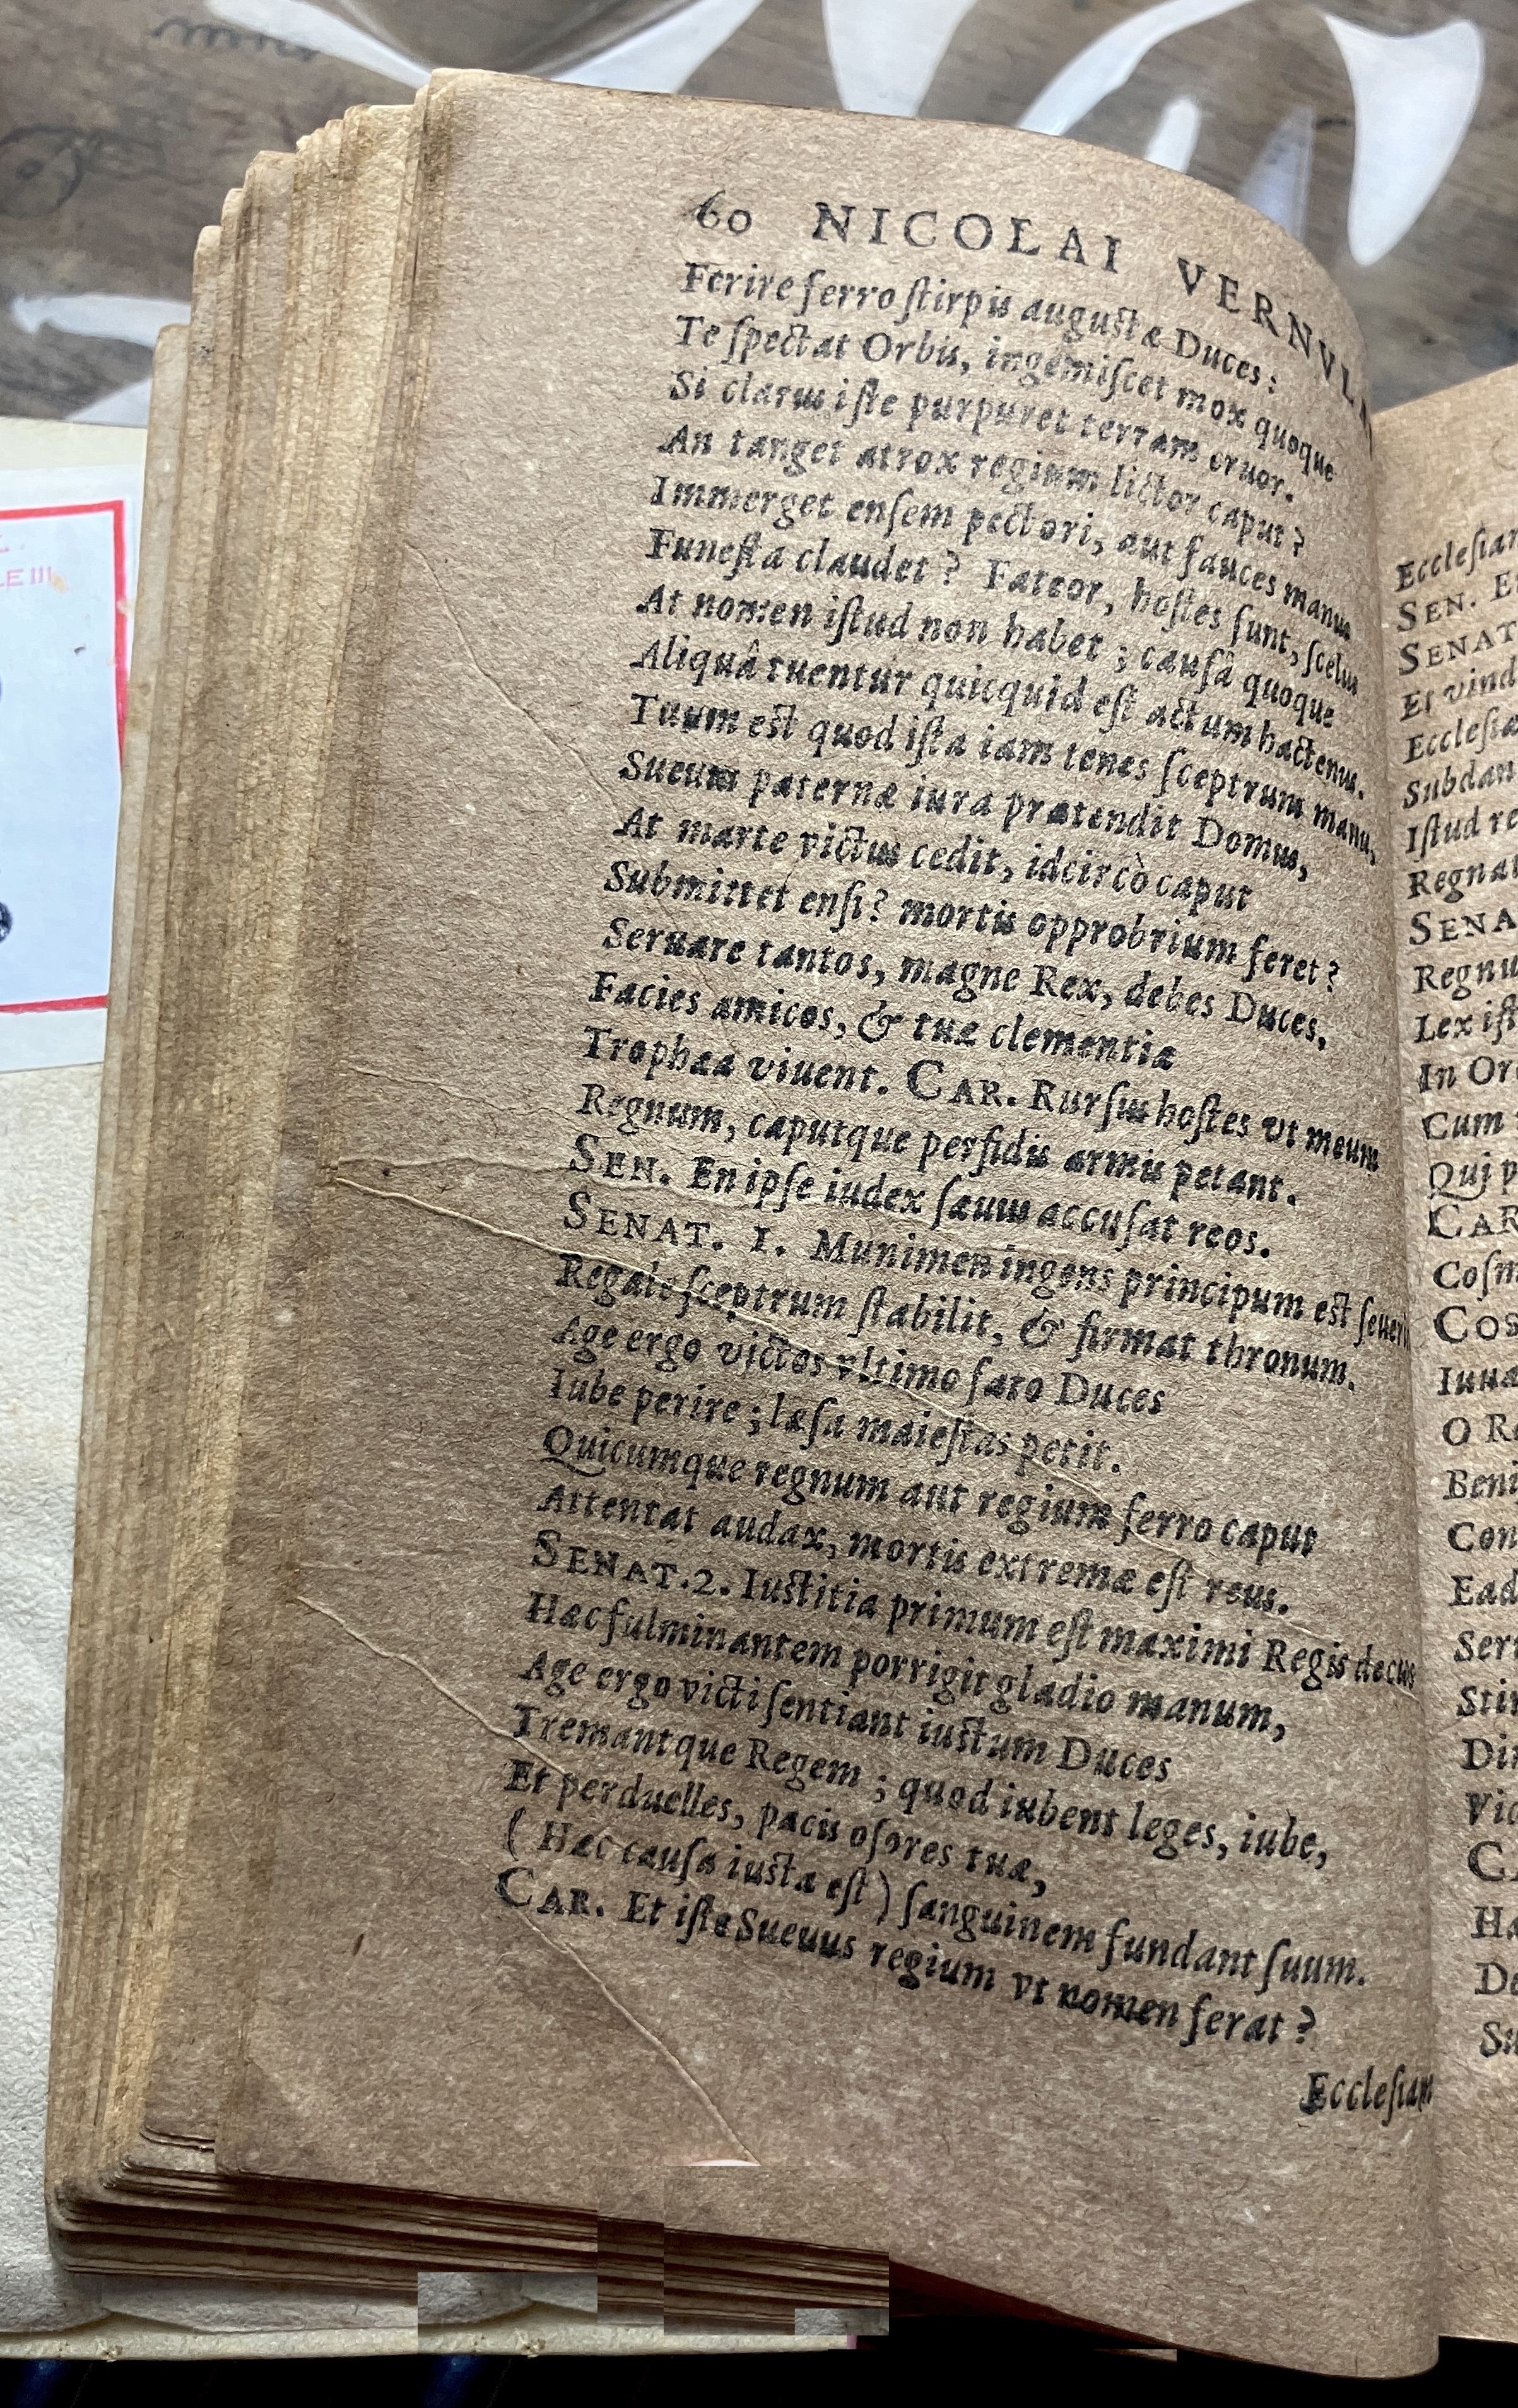 60 NICOLAI VERNVLÆ
Ferire ferro stirpis augustæ Duces:
Te spectat Orbis, ingemiscet mox quoque
Si clarus iste purpuret terram cruor.
An tanget atrox regium lictor caput?
Immerget ensem pectori, aut fauces manus
Funesta claudet? Fateor, hostes sunt, scelus
At nomen istud non habet; causâ quoque
Aliquâ tuentur quicquid est actum hactenus.
Tuum est quod ista iam tenes sceptrum manu,
Sueum paternæ iura prætendit Domus,
At marte victus cedit, idcircò caput
Submittet ensi? mortis opprobrium feret?
Seruare tantos, magne Rex, debes Duces,
Facies amicos, & tuæ clementiæ
Trophæa viuent. CAR. Rursus hostes vt meum
Regnum, caputque perfidis armis petant.
SEN. En ipse iudex sæuus accusat reos.
SENAT. 1. Munimen ingens principum est
Regale sceptrum stabilit, & firmat thronum.
Age ergo victos vltimo fato Duces
Iube perire; læsa maiestas petit.
Quicumque regnum aut regium ferro caput
Attentat audax, mortis extremæ est reus.
SENAT.2. Iustitia primum est maximi Regis decus
Hæc fulminantem porrigit gladio manum,
Age ergo victi sentiant iustum Duces
Tremantque Regem; quod iubent leges, iube,
Et perduelles, pacis osores tuæ,
( Hæc causa iusta est ) sanguinem fundant suum.
CAR. Et iste Sueuus regium vt nomen ferat?
Ecclesiam
SEN.
SENAT
Et vind
Ecclesia
Subdan
Istud re
Regnat
SENA
Regnu
Lex ist
In Or
Cum
Qui p
CAR
Cosm
COS
Iuua
O R
Beni
Con
Ead
Ser
Stir
Di
Vic
CA
Ha
De
Su